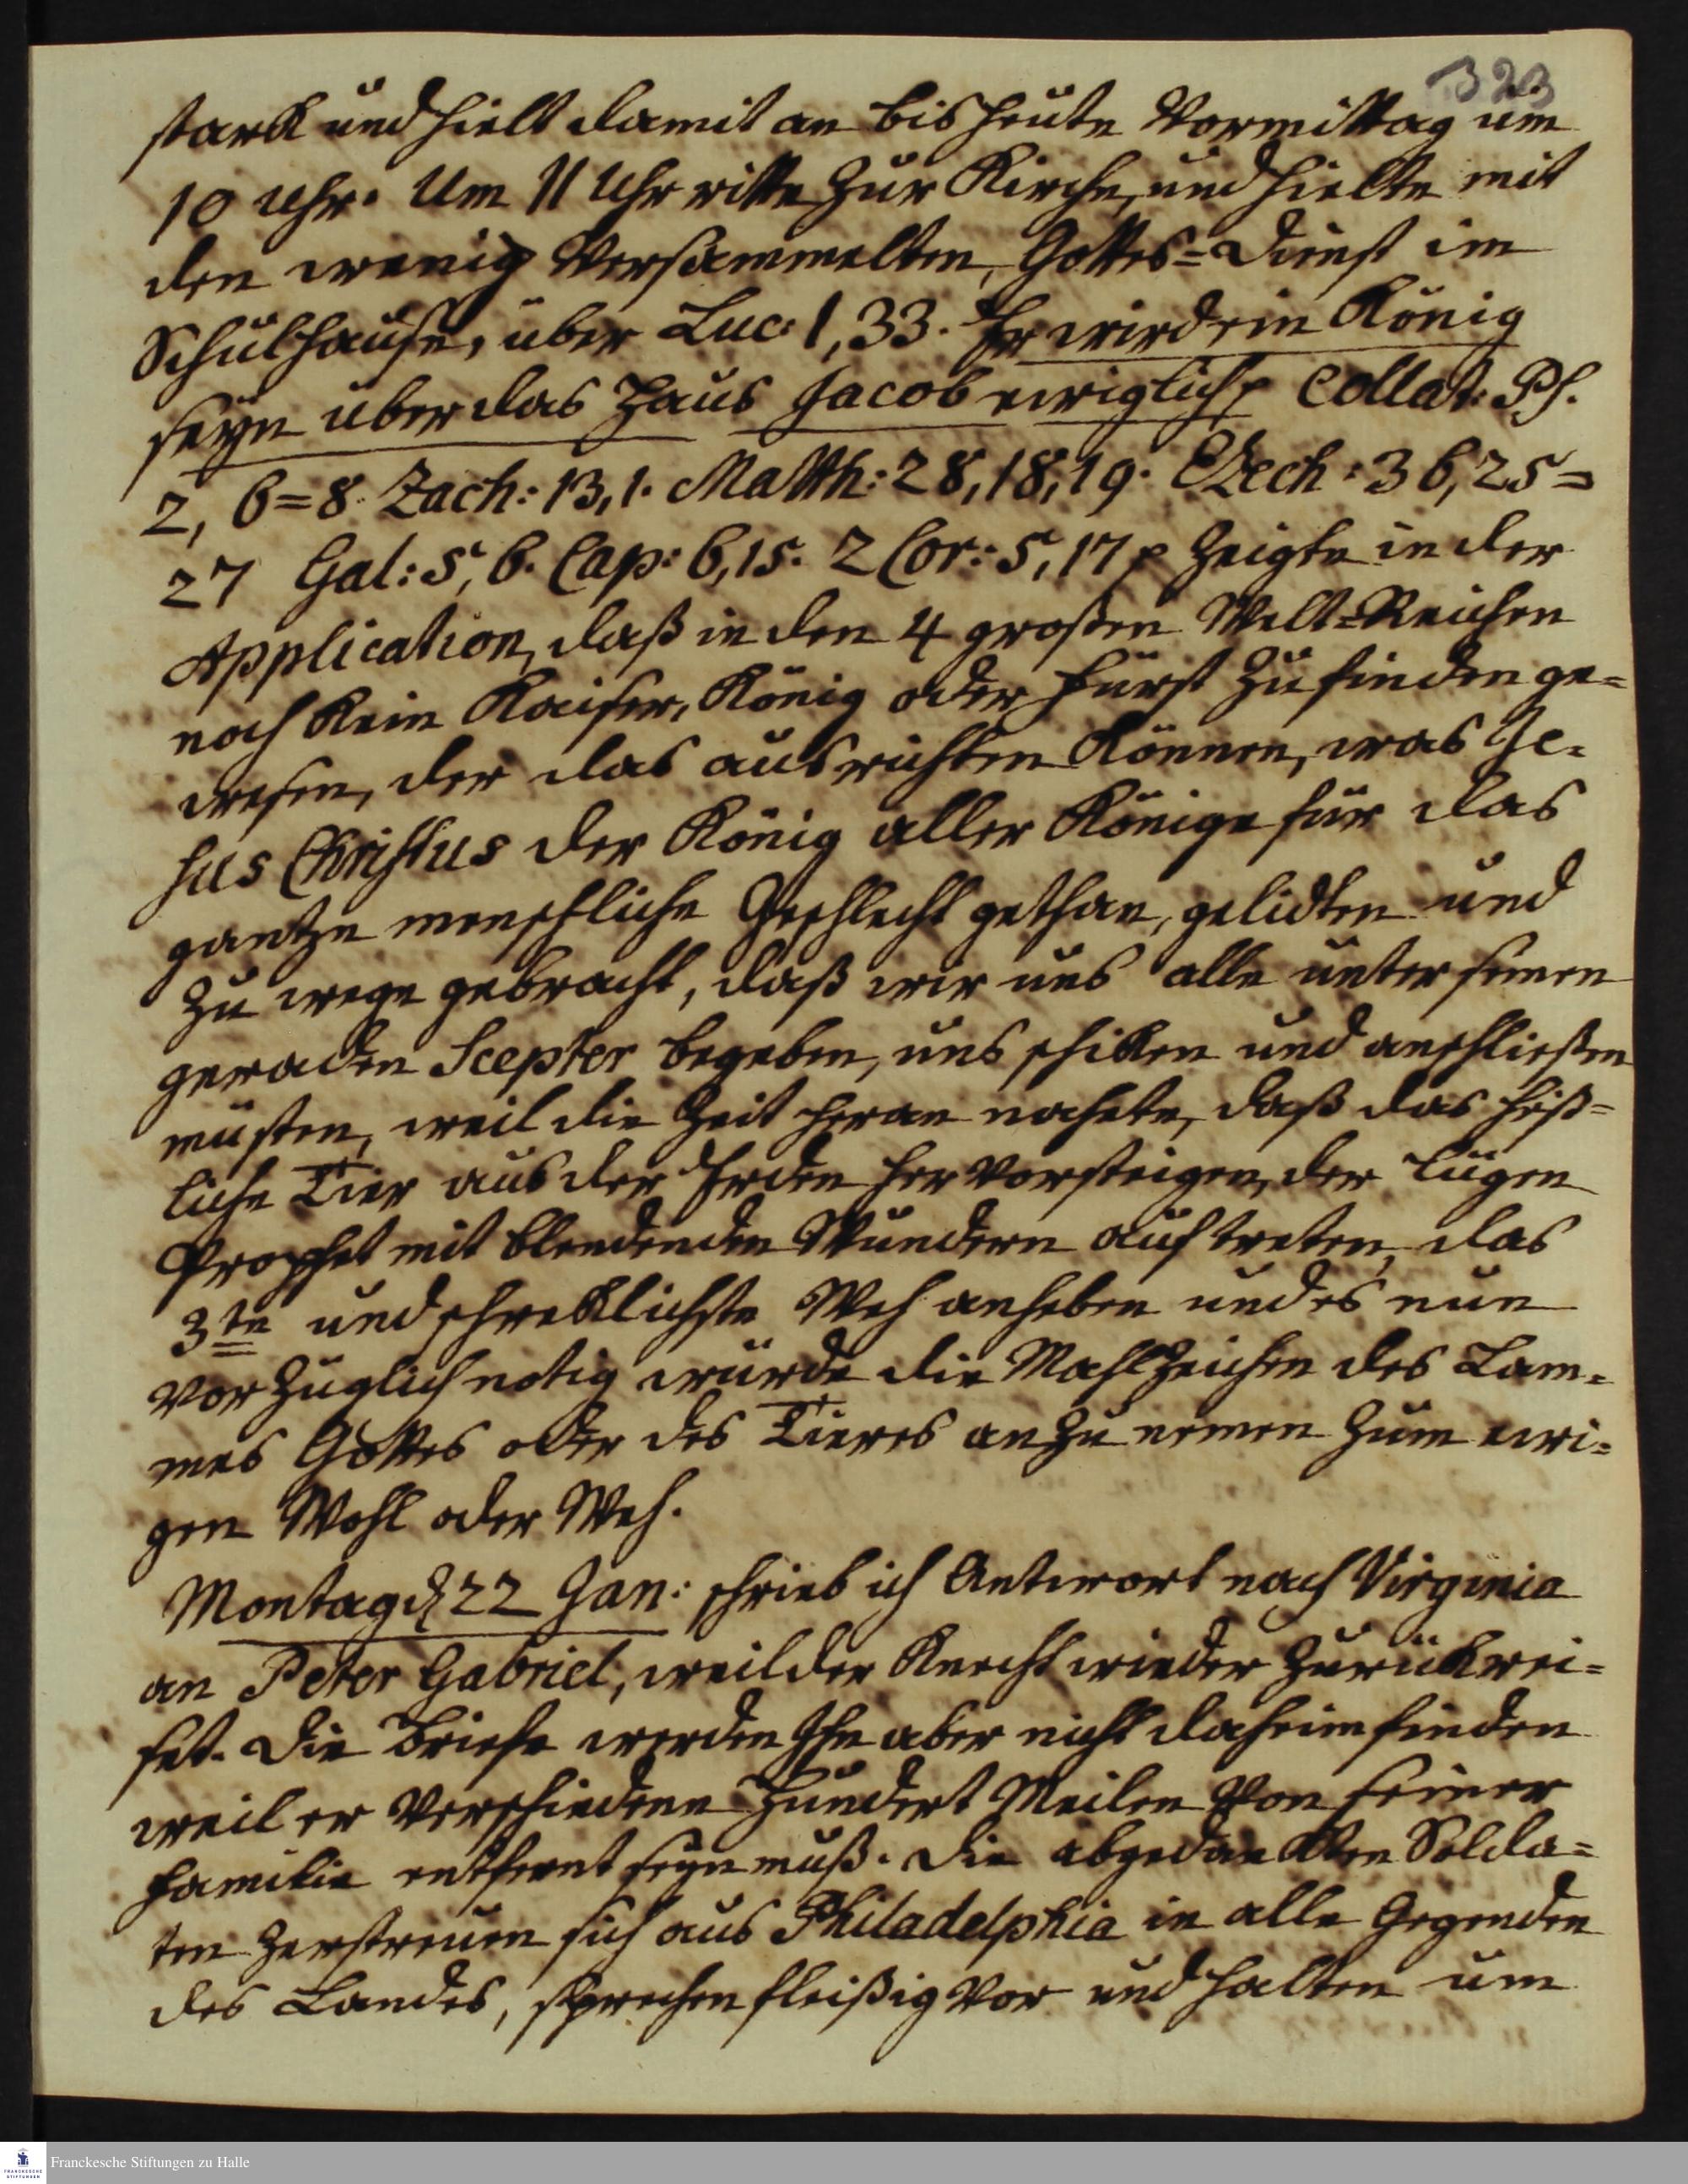 323
stark und hielt damit an bis heute Vormittag um
10 Uhr. Um 11 Uhr ritte zur Kirche, und hielte mit
den wenig Versammelten, Gottes=Dienst im
Schulhause, über Luc: 1, 33. Er wird ein König
seyn über das Haus Jacob ewiglich p Collat: Ps.
2, 6=8. Zach: 13,1. Matth: 28,18,19. Ezech: 36,25=
27 Gal: 5, 6. Cap: 6,15. 2 Cor: 5, 17 p zeigte in der
Application, daß in den 4 großen Welt=Reichen
noch kein Kaiser, König oder Fürst zu finden ge=
wesen, der das ausrichten können, was Je=
sus Christus der König aller Könige für das
gantze menschliche Geschlecht gethan, gelidten und
zu wege gebracht, daß wir uns alle unter seinen
geraden Scepter begeben, uns schiken und anschließen
müsten, weil die Zeit heran nahete, daß das häß=
liche Tier aus der Erden hervorsteigen, der Lügen
Prophet mit blendenden Wundern auftreten, das
3te und schreklichste Weh anheben und es nun
vorzüglich notig würde die Mahlzeichen des Lam=
mes Gottes oder des Tieres anzunemen zum ewi=
gen Wohl oder Weh.
Montag d 22 Jan: schrieb ich Antwort nach Virginia
an Peter Gabriel, weil der Knecht wieder zurükrei=
set. Die Briefe werden Ihn aber nicht daheim finden
weil er verschiedene Hundert Meilen von seiner
Familie entfernt seyn muß. Die abgedankten Solda=
ten zerstreuen sich aus Philadelphia in alle Gegenden
des Landes, sprechen fleißig vor und halten um
Franckesche Stiftungen zu Halle